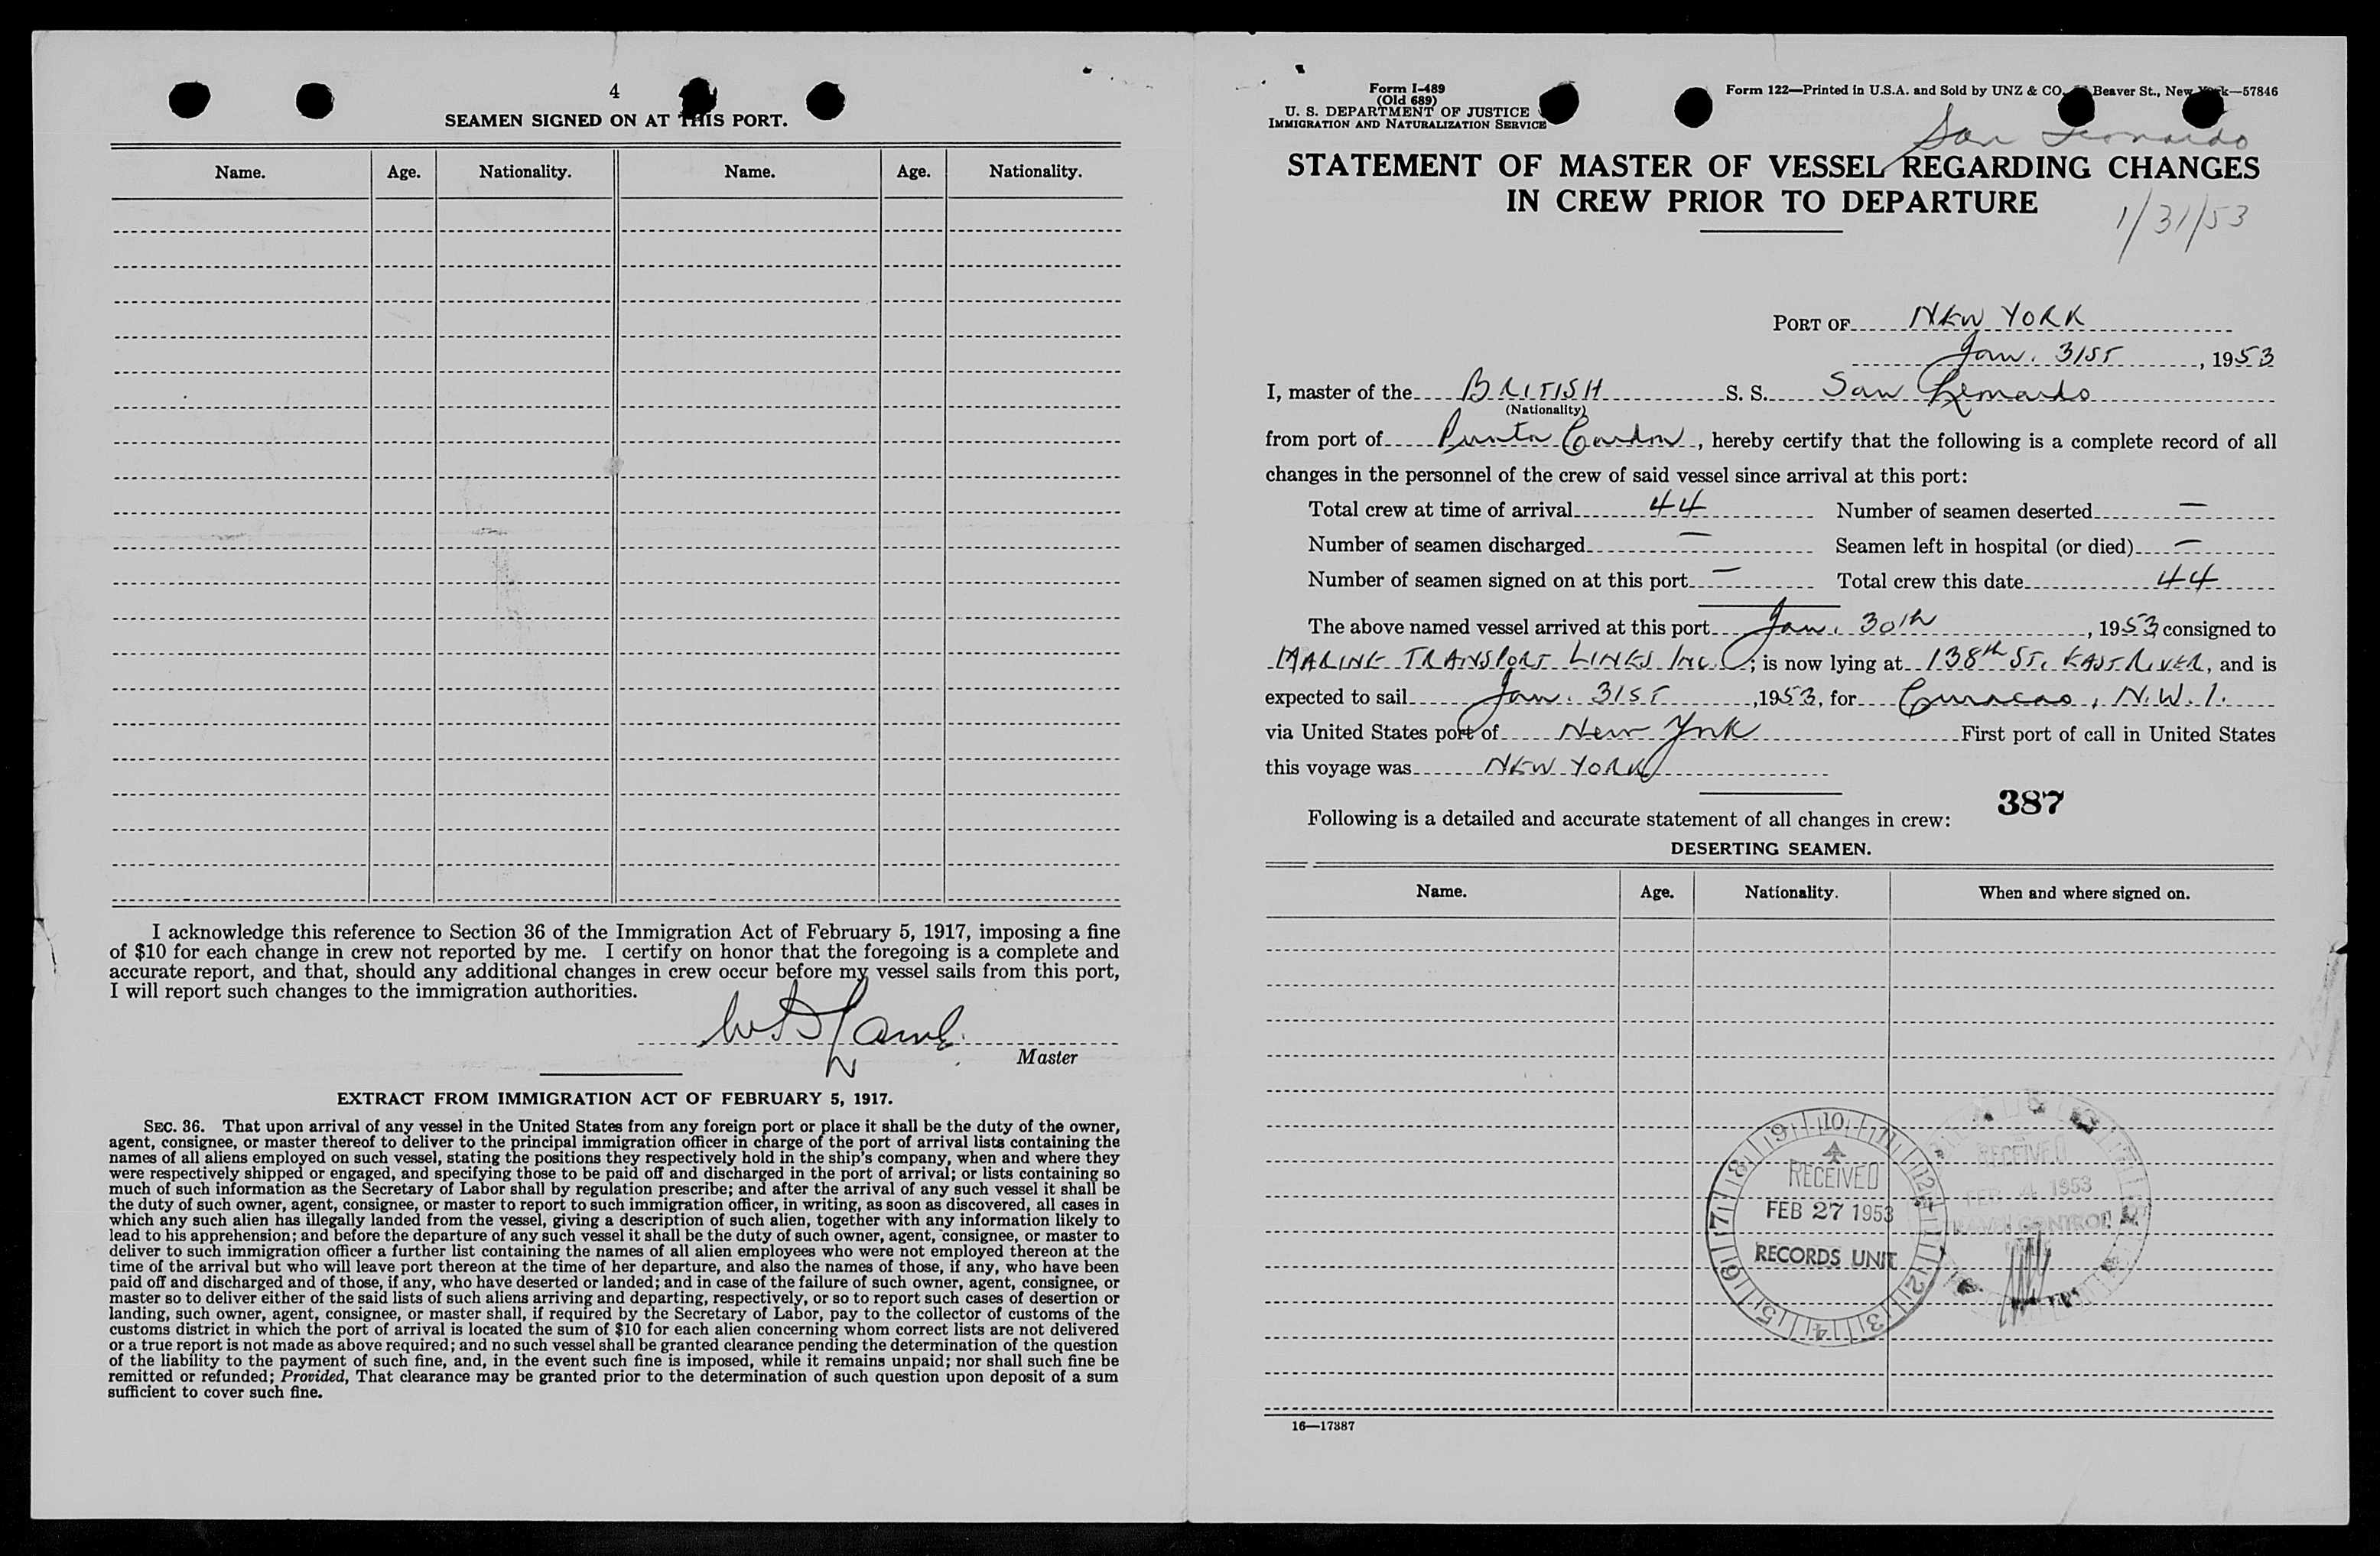 4
SEAMEN SIGNED ON AT THIS PORT.
Name. Age. Nationality. Name. Age. Nationality.
I acknowledge this reference to Section 36 of the Immigration Act of February 5, 1917, imposing a fine
of $10 for each change in crew not reported by me. I certify on honor that the foregoing is a complete and
accurate report, and that, should any additional changes in crew occur before my vessel sails from this port,
I will report such changes to the immigration authorities.
Master
EXTRACT FROM IMMIGRATION ACT OF FEBRUARY 5, 1917.
SEC. 36. That upon arrival of any vessel in the United States from any foreign port or place it shall be the duty of the owner,
agent, consignee, or master thereof to deliver to the principal immigration officer in charge of the port of arrival lists containing the
names of all aliens employed on such vessel, stating the positions they respectively hold in the ship's company, when and where they
were respectively shipped or engaged, and specifying those to be paid off and discharged in the port of arrival; or lists containing so
much of such information as the Secretary of Labor shall by regulation prescribe; and after the arrival of any such vessel it shall be
the duty of such owner, agent, consignee, or master to report to such immigration officer, in writing, as soon as discovered, all cases in
which any such alien has illegally landed from the vessel, giving a description of such alien, together with any information likely to
lead to his apprehension; and before the departure of any such vessel it shall be the duty of such owner, agent, consignee, or master to
deliver to such immigration officer a further list containing the names of all alien employees who were not employed thereon at the
time of the arrival but who will leave port thereon at the time of her departure, and also the names of those, if any, who have been
paid off and discharged and of those, if any, who have deserted or landed; and in case of the failure of such owner, agent, consignee, or
master so to deliver either of the said lists of such aliens arriving and departing, respectively, or so to report such cases of desertion or
landing, such owner, agent, consignee, or master shall, if required by the Secretary of Labor, pay to the collector of customs of the
customs district in which the port of arrival is located the sum of $10 for each alien concerning whom correct lists are not delivered
or a true report is not made as above required; and no such vessel shall be granted clearance pending the determination of the question
of the liability to the payment of such fine, and, in the event such fine is imposed, while it remains unpaid; nor shall such fine be
remitted or refunded; Provided, That clearance may be granted prior to the determination of such question upon deposit of a sum
sufficient to cover such fine.
Form I-489
(Old 689)
U. S. DEPARTMENT OF JUSTICE
IMMIGRATION AND NATURALIZATION SERVICE
Form 122—Printed in U.S.A. and Sold by UNZ & CO. Beaver St., New York—57846
San Leonardo
STATEMENT OF MASTER OF VESSEL REGARDING CHANGES
IN CREW PRIOR TO DEPARTURE
1/31/53
PORT OF NEW YORK
Jan. 31ST, 1953
I, master of the BRITISH S. S. San Leonardo
(Nationality)
from port of Punta Cardon, hereby certify that the following is a complete record of all
changes in the personnel of the crew of said vessel since arrival at this port:
Total crew at time of arrival 44 Number of seamen deserted —
Number of seamen discharged — Seamen left in hospital (or died) —
Number of seamen signed on at this port — Total crew this date 44
The above named vessel arrived at this port Jan. 30th, 1953 consigned to
MARINE TRANSPORT LINES Inc.; is now lying at 138th ST. EAST RIVER, and is
expected to sail Jan. 31ST, 1953, for Curacao, N.W.I.
via United States port of New York First port of call in United States
this voyage was NEW YORK
387
Following is a detailed and accurate statement of all changes in crew:
DESERTING SEAMEN.
Name. Age. Nationality. When and where signed on.
9 10 11 12 1 2 3 4 5 6 7 8
RECEIVED
FEB 27 1953
RECORDS UNIT
RECEIVED
FEB 4 1953
CONTROL
16—17387